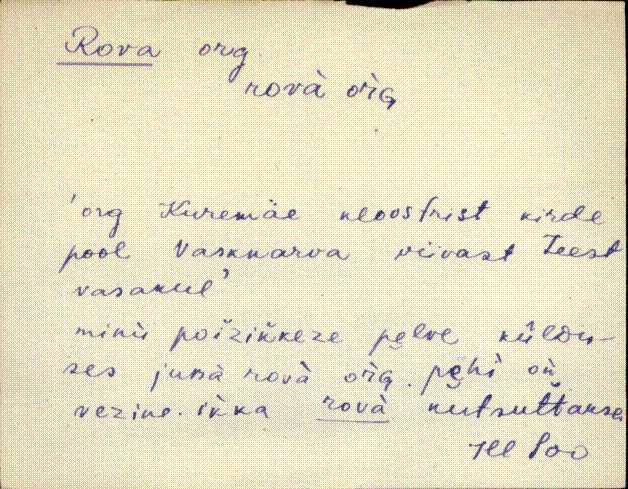 Rova org
rovà òrg
'org Kuremäe kloostrist kirde
pool Vasknarva viivast teest
vasakul'
minu põlve küldu-
ses jukà rovà òrg. pehi on
vezine. ikka rovà kutsuttakse